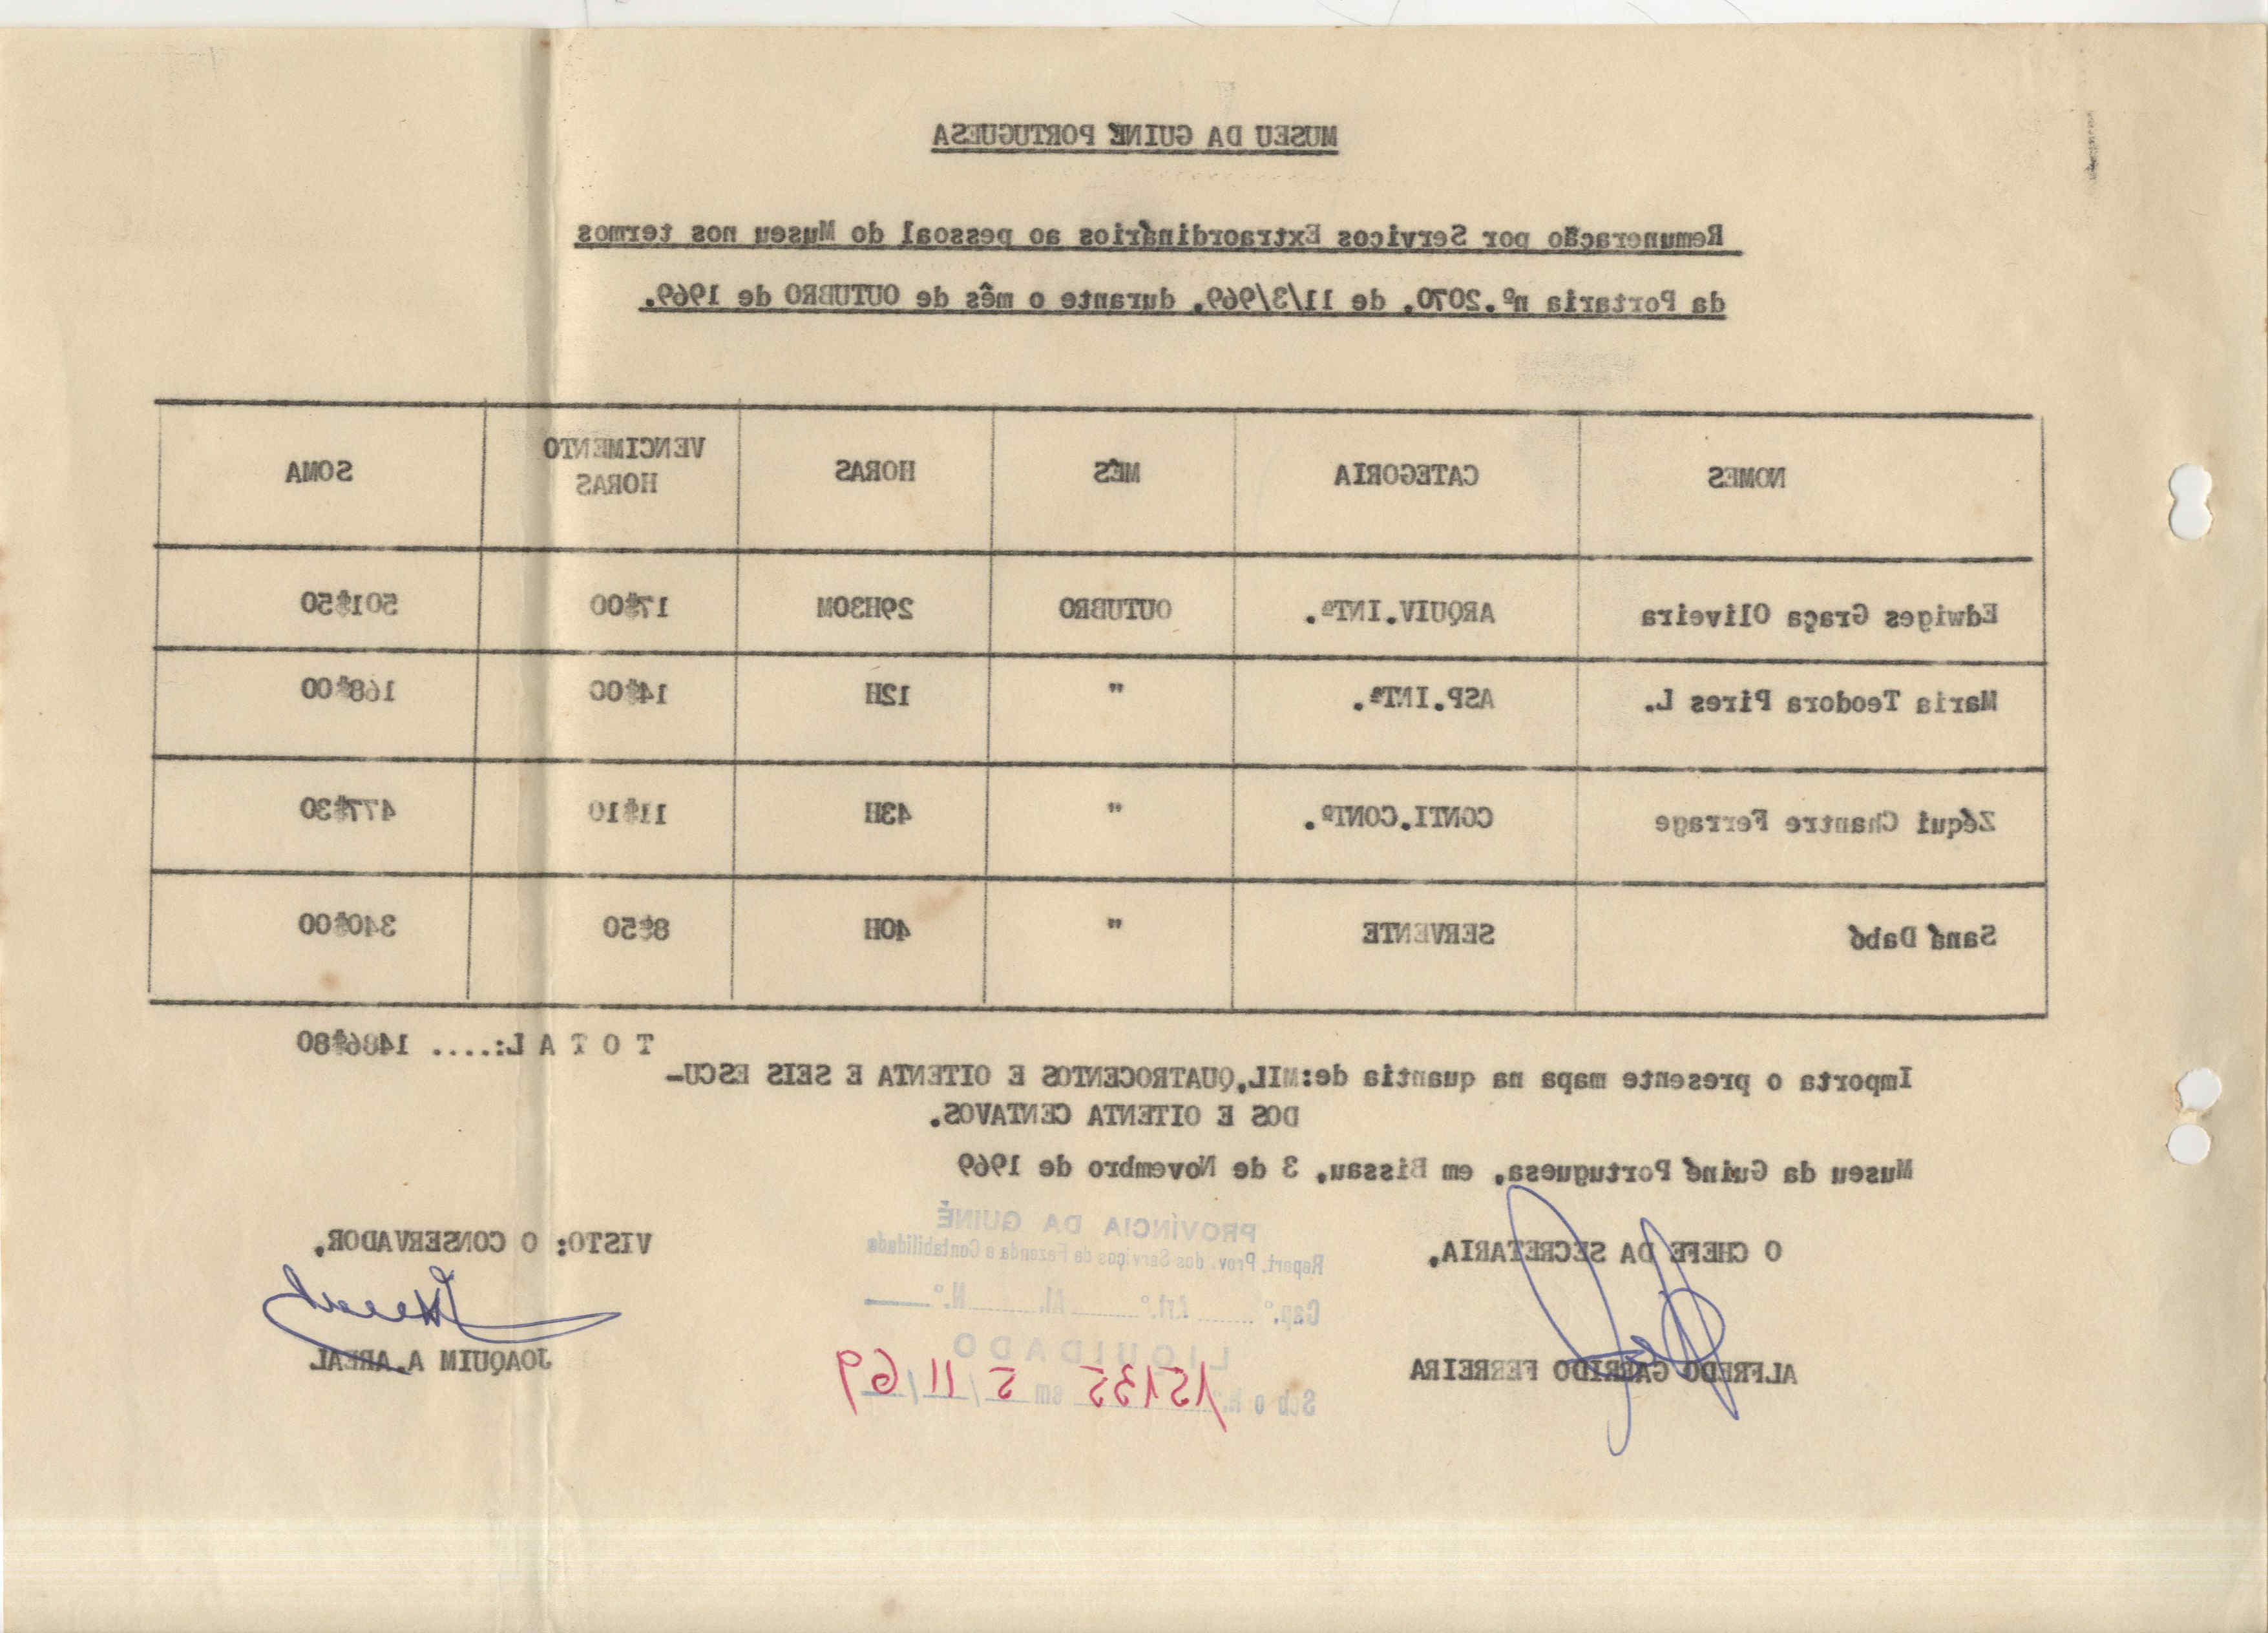 MUSEU DA GUINÉ PORTUGUESA
Remuneração por Serviços Extraordinários ao pessoal do Museu nos termos
da Portaria nº.2070, de 11/3/969, durante o mês de OUTUBRO de 1969.
NOMES CATEGORIA MÊS HORAS VENCIMENTO HORAS SOMA
Edwiges Graça Oliveira ARQUIV.INTº. OUTUBRO 29H30M 17$00 501$50
Maria Teodora Pires L. ASP.INTª. " 12H 14$00 168$00
Zéqui Chantre Ferrage CONTI.CONTº. " 43H 11$10 477$30
Saná Dabó SERVENTE " 40H 8$50 340$00
T O T A L:.... 1486$80
Importa o presente mapa na quantia de:MIL,QUATROCENTOS E OITENTA E SEIS ESCU-
DOS E OITENTA CENTAVOS.
Museu da Guiné Portuguesa, em Bissau, 3 de Novembro de 1969
O CHEFE DA SECRETARIA,
ALFREDO GARRIDO FERREIRA
PROVÍNCIA DA GUINÉ
Repart. Prov. dos Serviços de Fazenda e Contabilidade
Cap.º Art.º Al. N.º
LIQUIDADO
Sob o n.º 15135 em 5/11/69
VISTO: O CONSERVADOR,
JOAQUIM A.AREAL